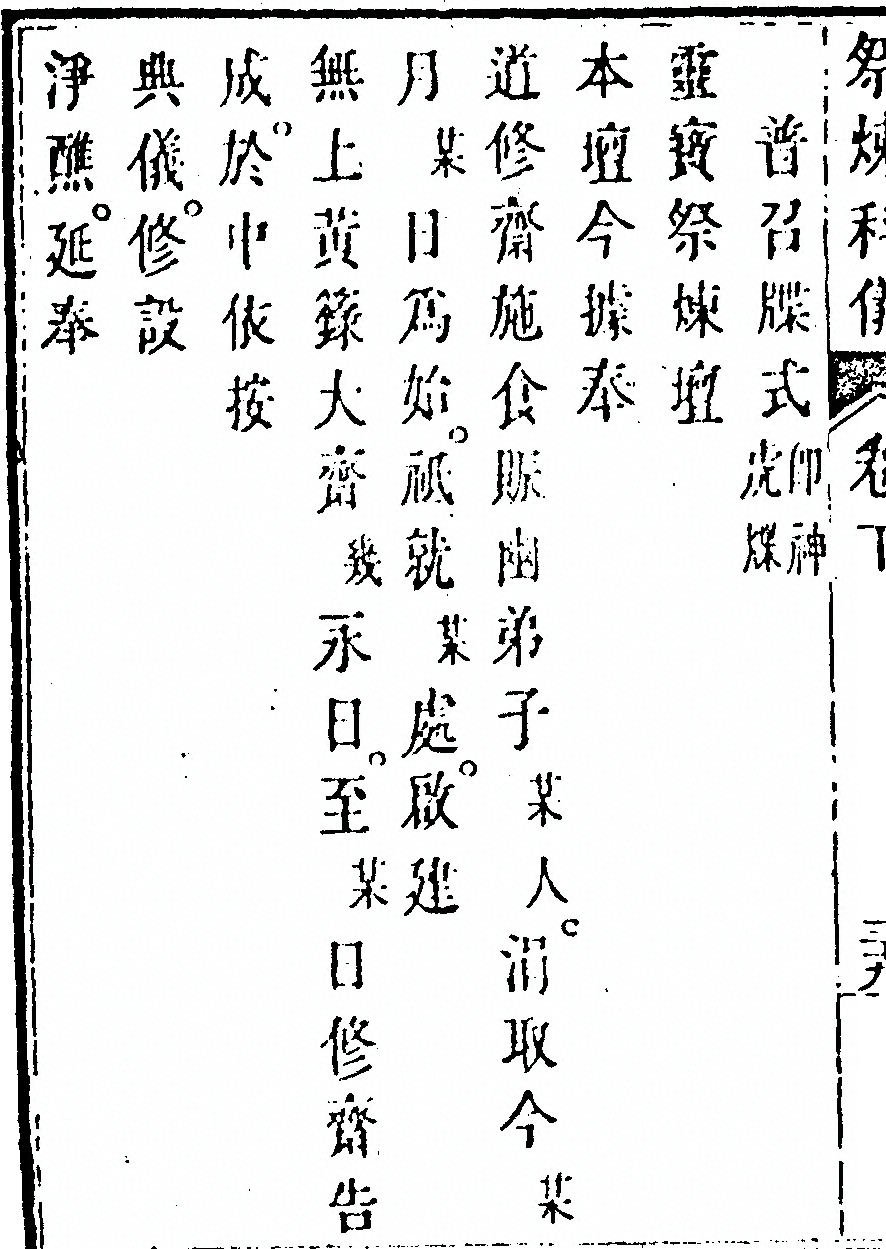 祭煉科儀 卷下
普召牒式 仰神虎牒
靈寳祭煉壇
本壇今據奉
道修齋施食賑幽弟子某人。涓取今某
月某日爲始。祇就某處。啟建
無上黄籙大齋幾永日。至某日修齋告
成。於中依按
典儀。修設
淨醮。延奉